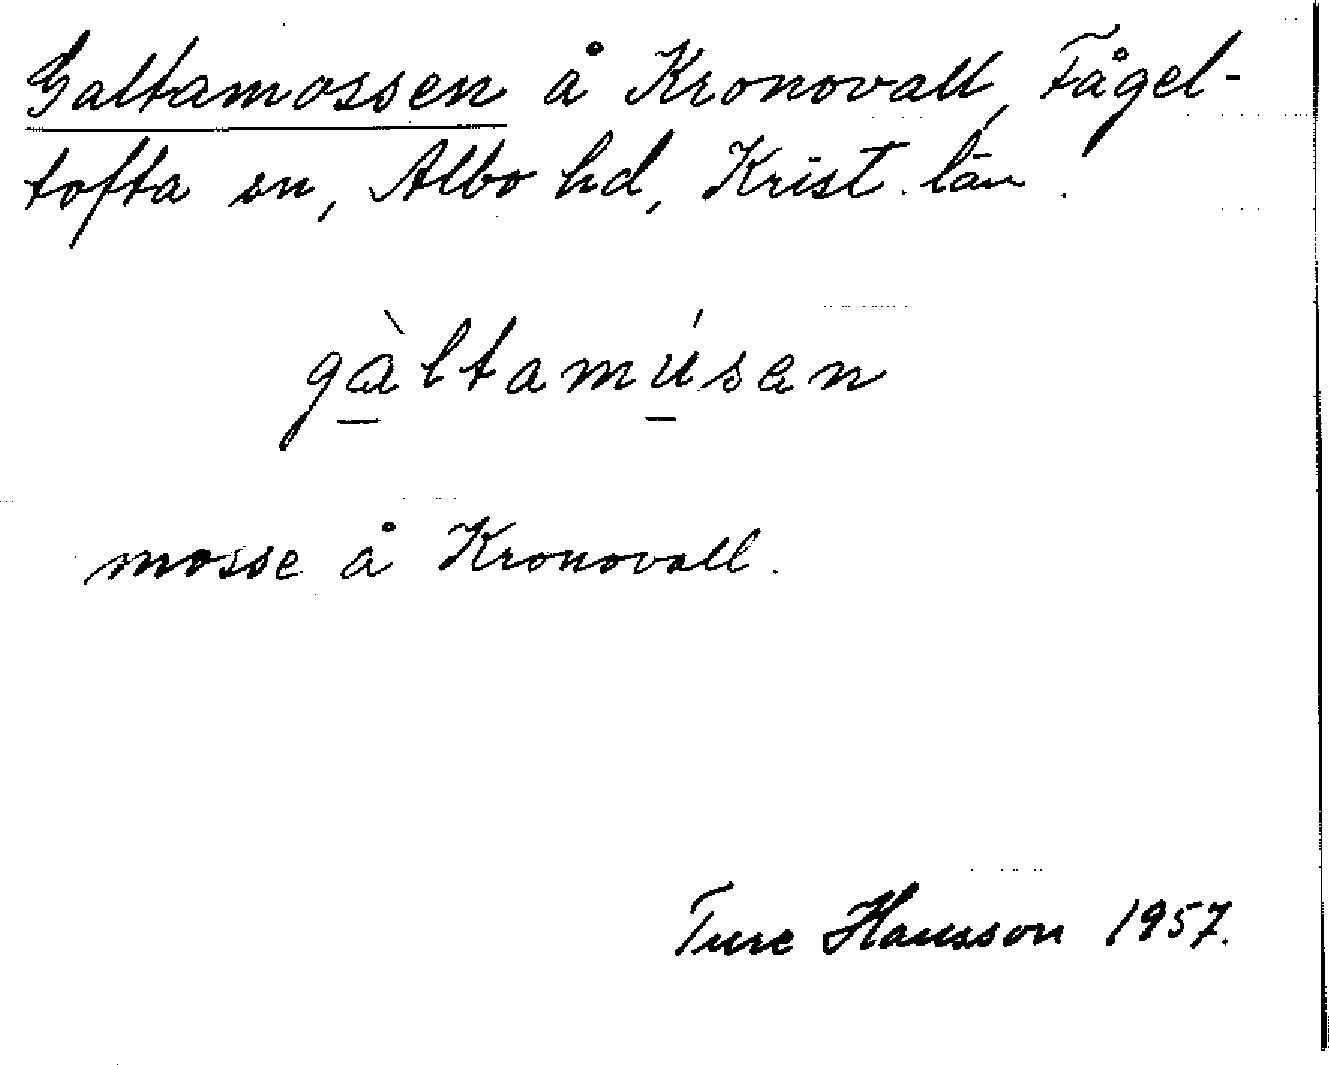 Galtamossen å Kronovall, Fågel-
tofta sn, Albo hd, Krist. län.
gàltamúsen
mosse å Kronovall.
Ture Hansson 1957.